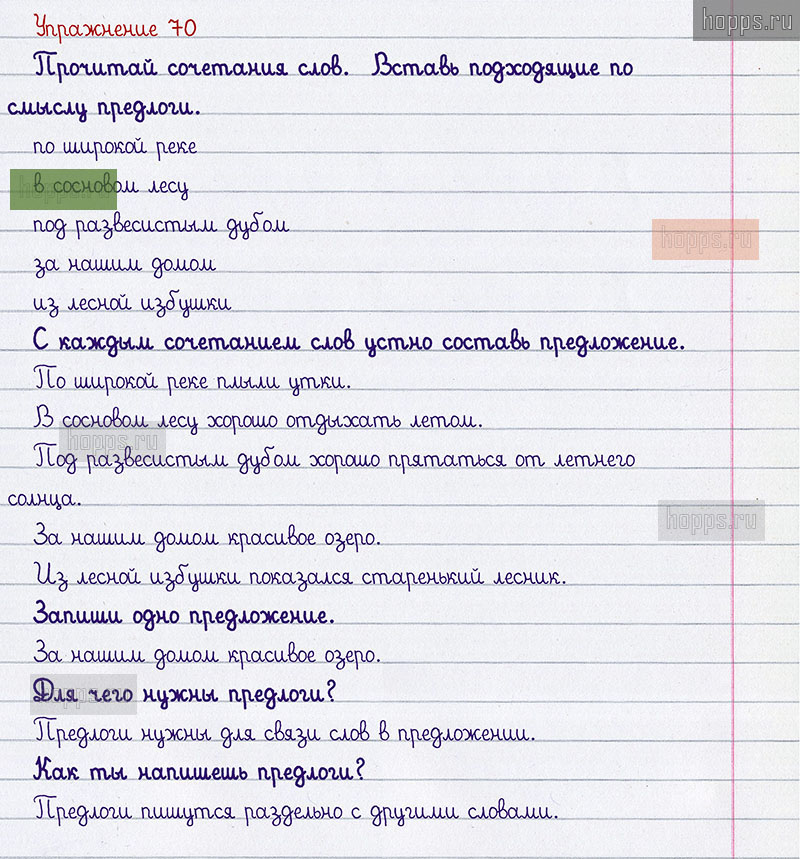 hopps.ru
Упражнение 70
Прочитай сочетания слов. Вставь подходящие по
смыслу предлоги.
по широкой реке
в сосновом лесу
под развесистым дубом
hopps.ru
за нашим домом
из лесной избушки
С каждым сочетанием слов устно составь предложение.
По широкой реке плыли утки.
В сосновом лесу хорошо отдыхать летом.
hopps.ru
Под развесистым дубом хорошо прятаться от летнего
солнца.
hopps.ru
За нашим домом красивое озеро.
Из лесной избушки показался старенький лесник.
Запиши одно предложение.
За нашим домом красивое озеро.
Для чего нужны предлоги?
Предлоги нужны для связи слов в предложении.
Как ты напишешь предлоги?
Предлоги пишутся раздельно с другими словами.